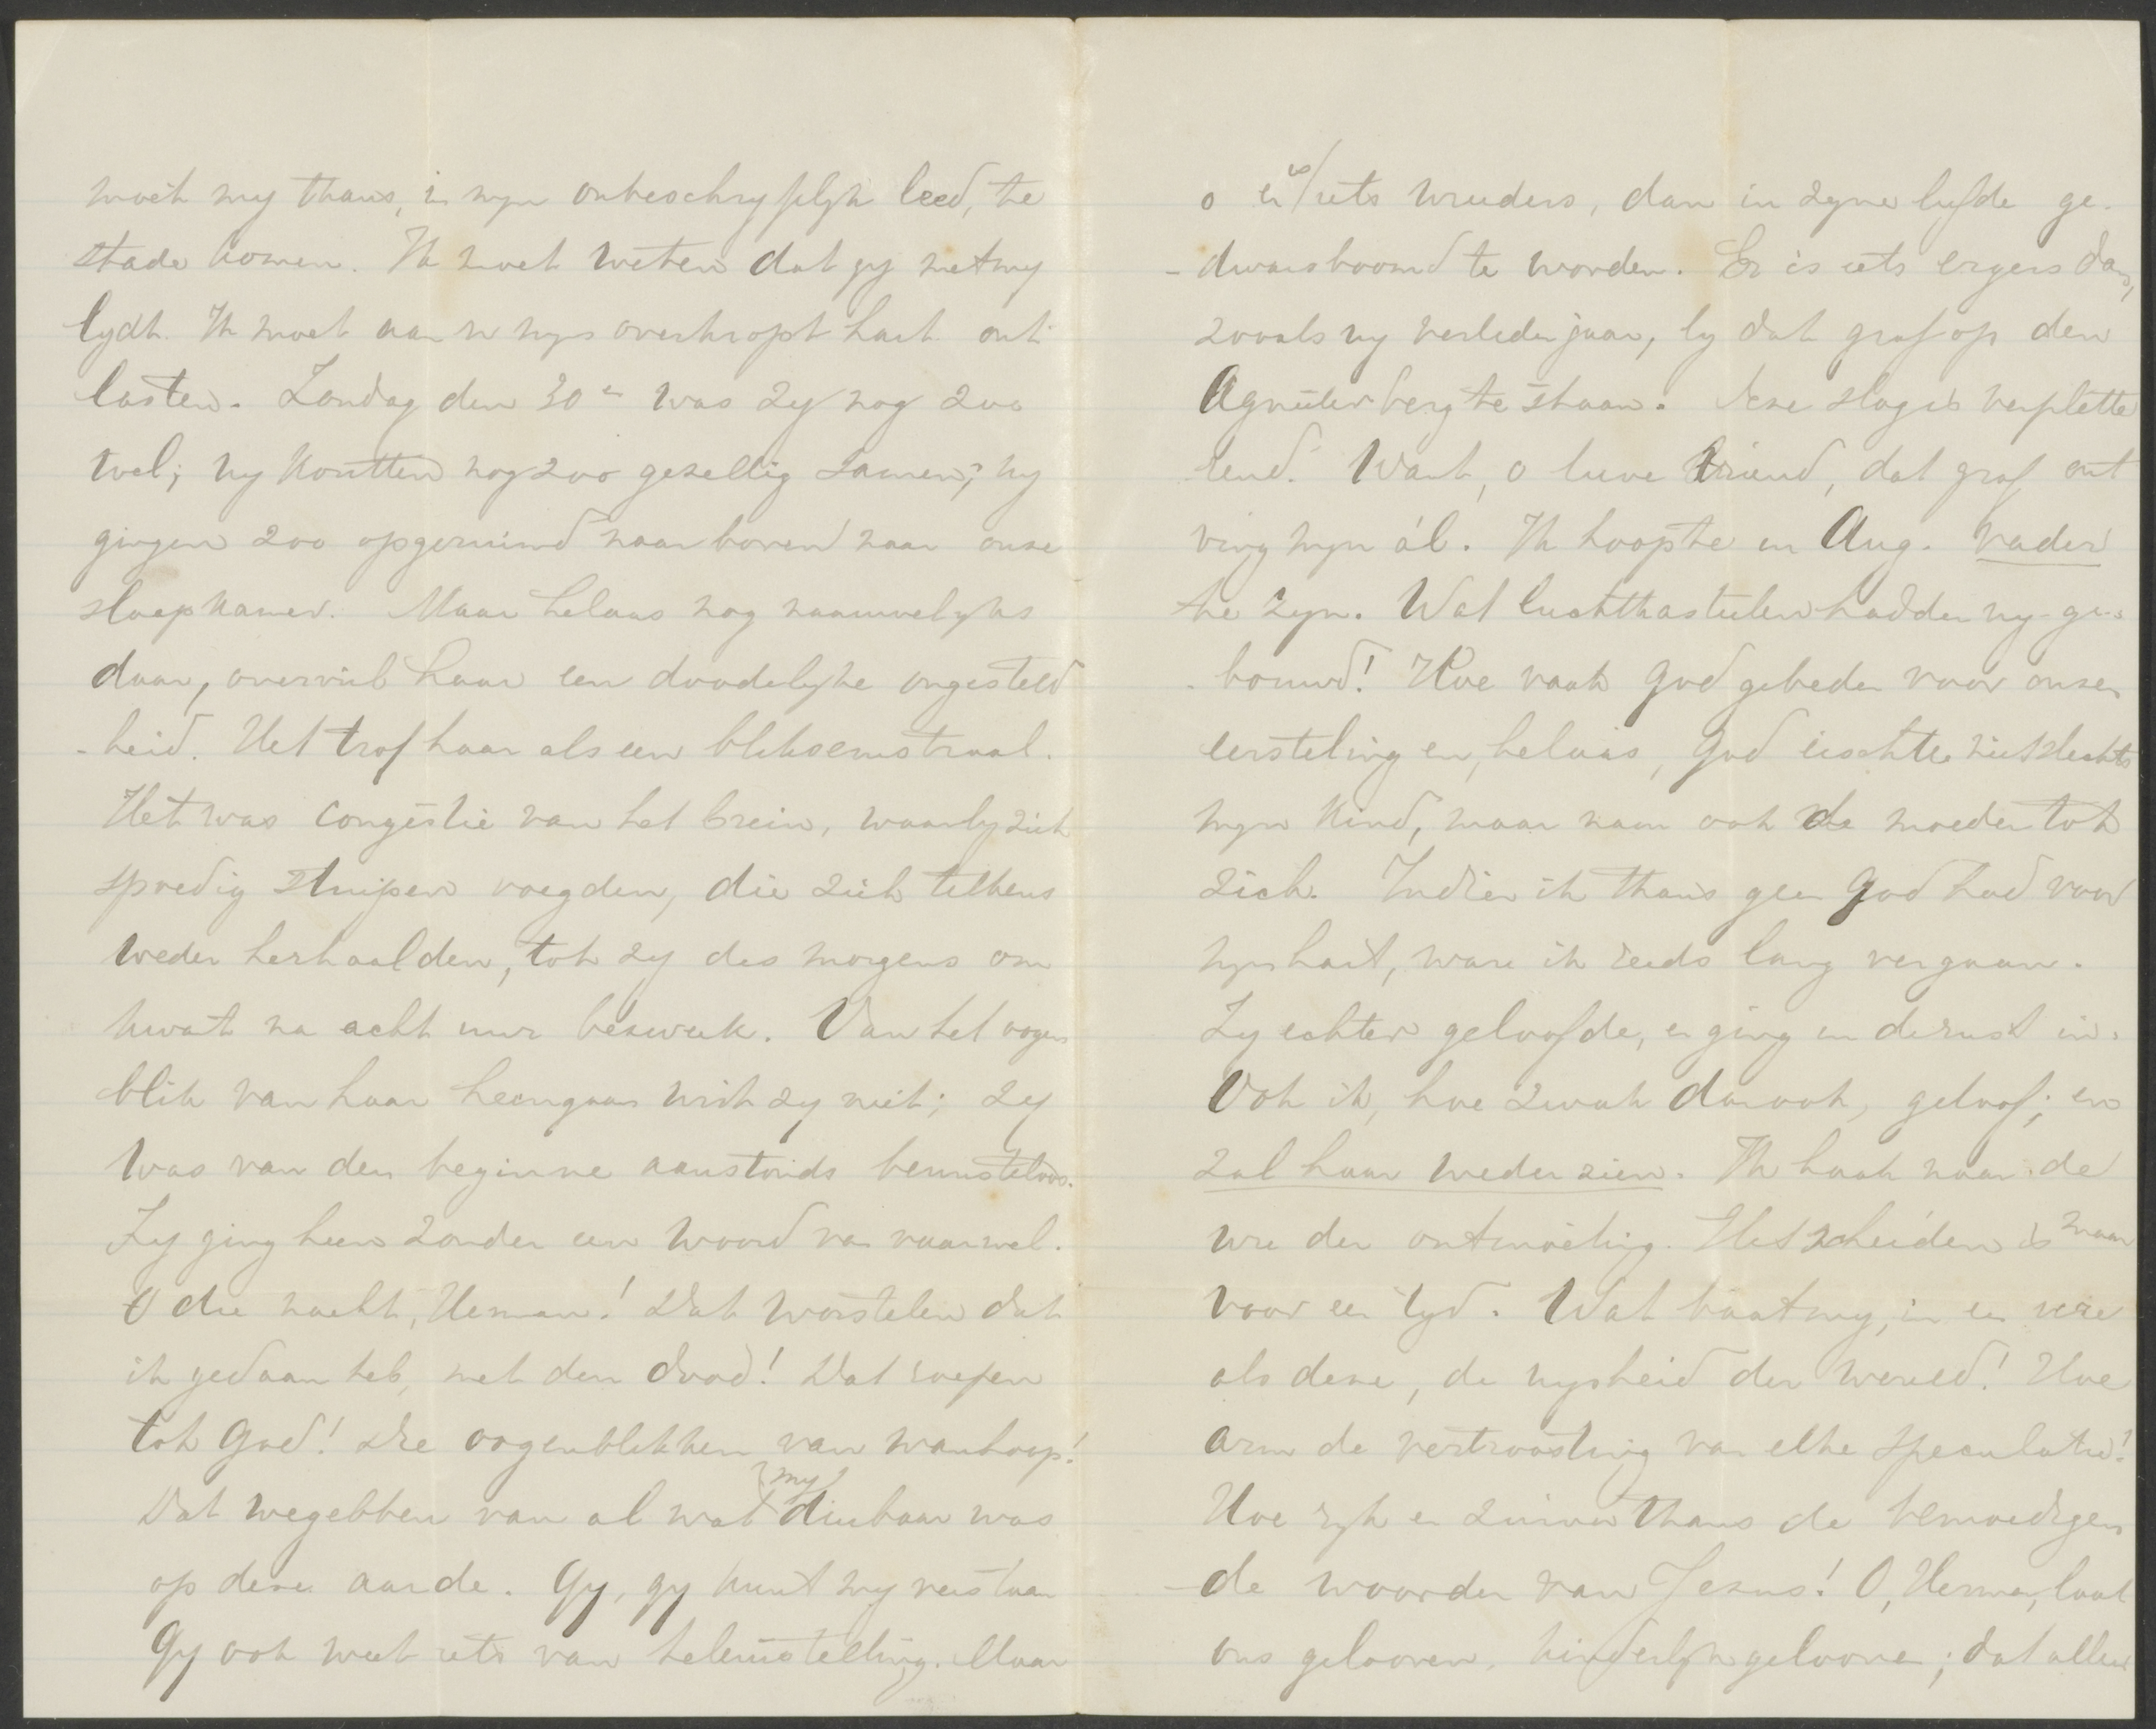 moet my thans, in myn onbeschryflyk leed, te
stade komen. Ik moet weten dat gy met my
lydt. Ik moet aan u myn overkropt hart ont-
lasten. Zondag den 30en was zy nog zoo
wel; wy koutten nog zoo gezellig samen; wy
gingen zoo opgeruimd naar boven naar onze
slaapkamer. Maar helaas nog naauwelyks
daar, overviel haar een doodelyke ongesteld
-heid. Het trof haar als een bliksemstraal.
Het was congestie van het brein, waarby zich
spoedig stuipen voegden, die zich telkens
weder herhaalden, tot zy des morgens om
kwart na acht uur bezweek. Van het oogen
blik van haar heengaan wist zy niet; zy
was van den beginne aanstonds bewusteloos.
Zy ging heen zonder een woord van vaarwel.
O die nacht, Herman! Dat worstelen dat
ik gedaan heb, met den dood! Dat roepen
tot God! Die oogenblikken van wanhoop!
Dat wegebben van al wat my dierbaar was
op deze aarde. Gy, gy kunt my verstaan
Gy ook weet iets van teleurstelling. Maar
o er is iets wreeders, dan in zyne liefde ge-
-dwarsboomd te worden. Er is iets ergers dan,
zooals wy verleden jaar, by dat graf op den
Agnieterberg te staan. Deze slag is verplette
rend. Want, o lieve vriend, dat graf ont
ving myn ál. Ik hoopte in Aug. vader
te zyn. Wat luchtkasteelen hadden wy ge-
-bouwd! Hoe vaak God gebeden voor onzen
eersteling en, helaas, God eischte niet slechts
myn kind, maar nam ook de moeder tot
zich. Indien ik thans geen God had voor
myn hart, ware ik reeds lang vergaan.
Zy echter geloofde, en ging in de rust in.
Ook ik, hoe zwak dan ook, geloof; en
zal haar wederzien. Ik haak naar de
ure der ontmoeting. Het scheiden is maar
voor een tyd. Wat baat my, in een ure
als deze, de wysheid der wereld! Hoe
arm de vertroosting van elke speculatie!
Hoe ryk en zuiver thans de bemoedigen
-de woorden van Jezus! O, Herman, laat
ons gelooven, kinderlyk gelooven; dat alleen